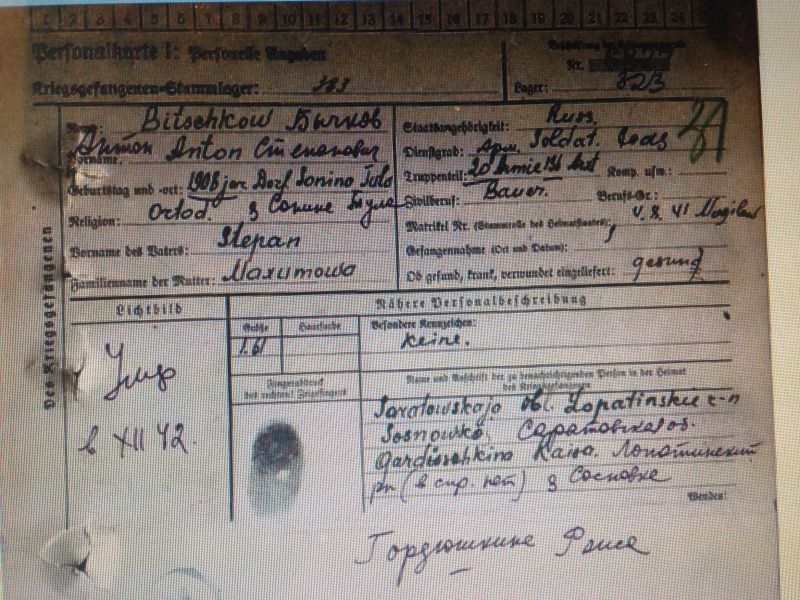 1 2 3 4 5 6 7 8 9 10 11 12 13 14 15 16 17 18 19 20 21 22 23 24
Personalkarte I: Personelle Angaben
Kriegsgefangenen-Stammlager:
Nr.
Lager: 323
Des Kriegsgefangenen
Name: Bitschkow Бычков
Vorname: Anton Степанович
Geburtstag und -ort: 1908 Dorf Sonino Tula
Religion: Ortod. д Сонино Тула
Vorname des Vaters: Stepan
Familienname der Mutter: Maximowa
Staatsangehörigkeit: Russ.
Dienstgrad: Soldat.
Truppenteil: Komp. usw.:
Zivilberuf: Bauer. Berufs-Gr.:
Matrikel Nr. (Stammrolle des Heimatstaates):
Gefangennahme (Ort und Datum):
Ob gesund, krank, verwundet eingeliefert: gesund
Lichtbild
Nähere Personalbeschreibung
Größe Haarfarbe Besondere Kennzeichen:
1.61 keine.
Fingerabdruck
des rechten Zeigefingers
Name und Anschrift der zu benachrichtigenden Person in der Heimat
des Kriegsgefangenen
Saratowskaja obl. Lopatinskie r-n
Sosnowka Саратовская о.
Gardüschkina Raisa. Лопатинский
рн (в спр. нет) д Сосновка
Wenden!
в XII 42.
Гордюшкина Раиса